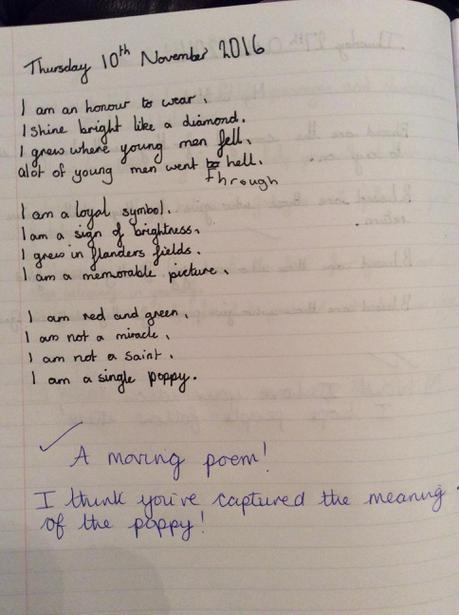 Thursday 10th November 2016
I am an honour to wear,
I shine bright like a diamond.
I grew where young men fell,
alot of young men went through hell.
I am a loyal symbol.
I am a sign of brightness,
I grew in flanders fields.
I am a memorable picture,
I am red and green,
I am not a miracle,
I am not a saint,
I am a single poppy.
A moving poem!
I think you've captured the meaning
of the poppy!